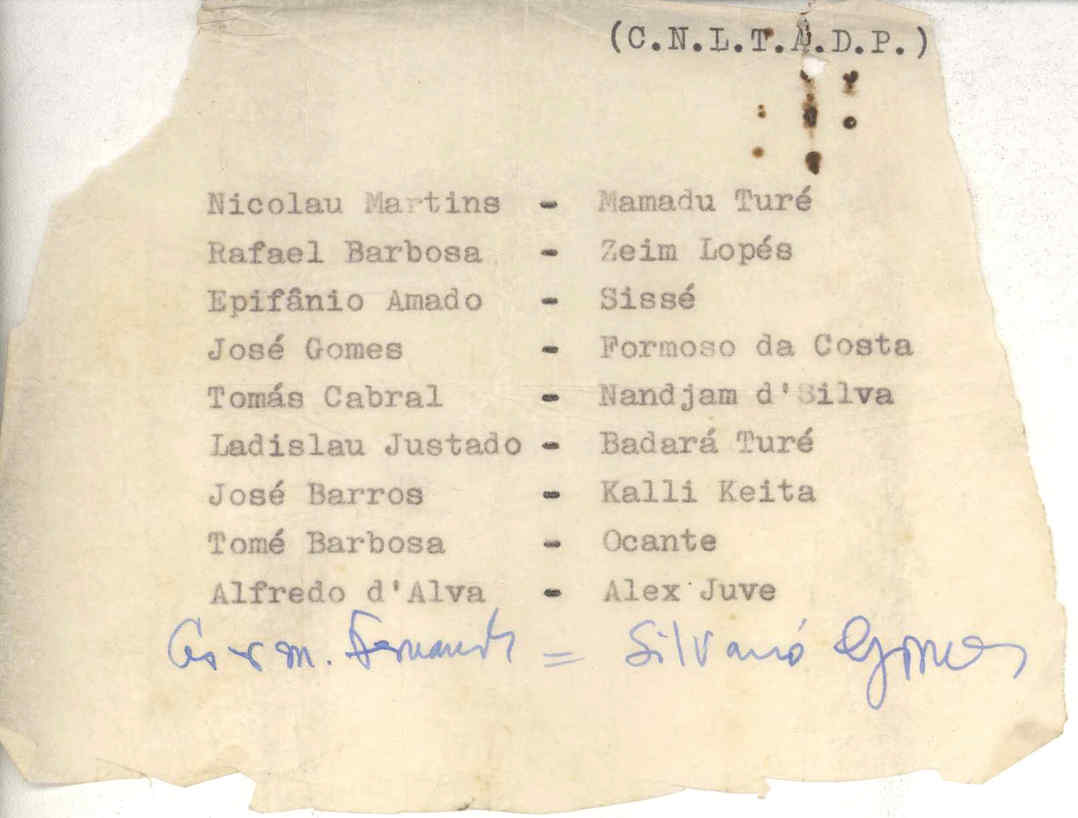 (C.N.L.T.A.D.P.)
Nicolau Martins - Mamadu Turé
Rafael Barbosa - Zeim Lopés
Epifânio Amado - Sissé
José Gomes - Formoso da Costa
Tomás Cabral - Nandjam d'Silva
Ladislau Justado - Badará Turé
José Barros - Kalli Keita
Tomé Barbosa - Ocante
Alfredo d'Alva - Alex Juve
m. Fernandes = Silvanó Gomes